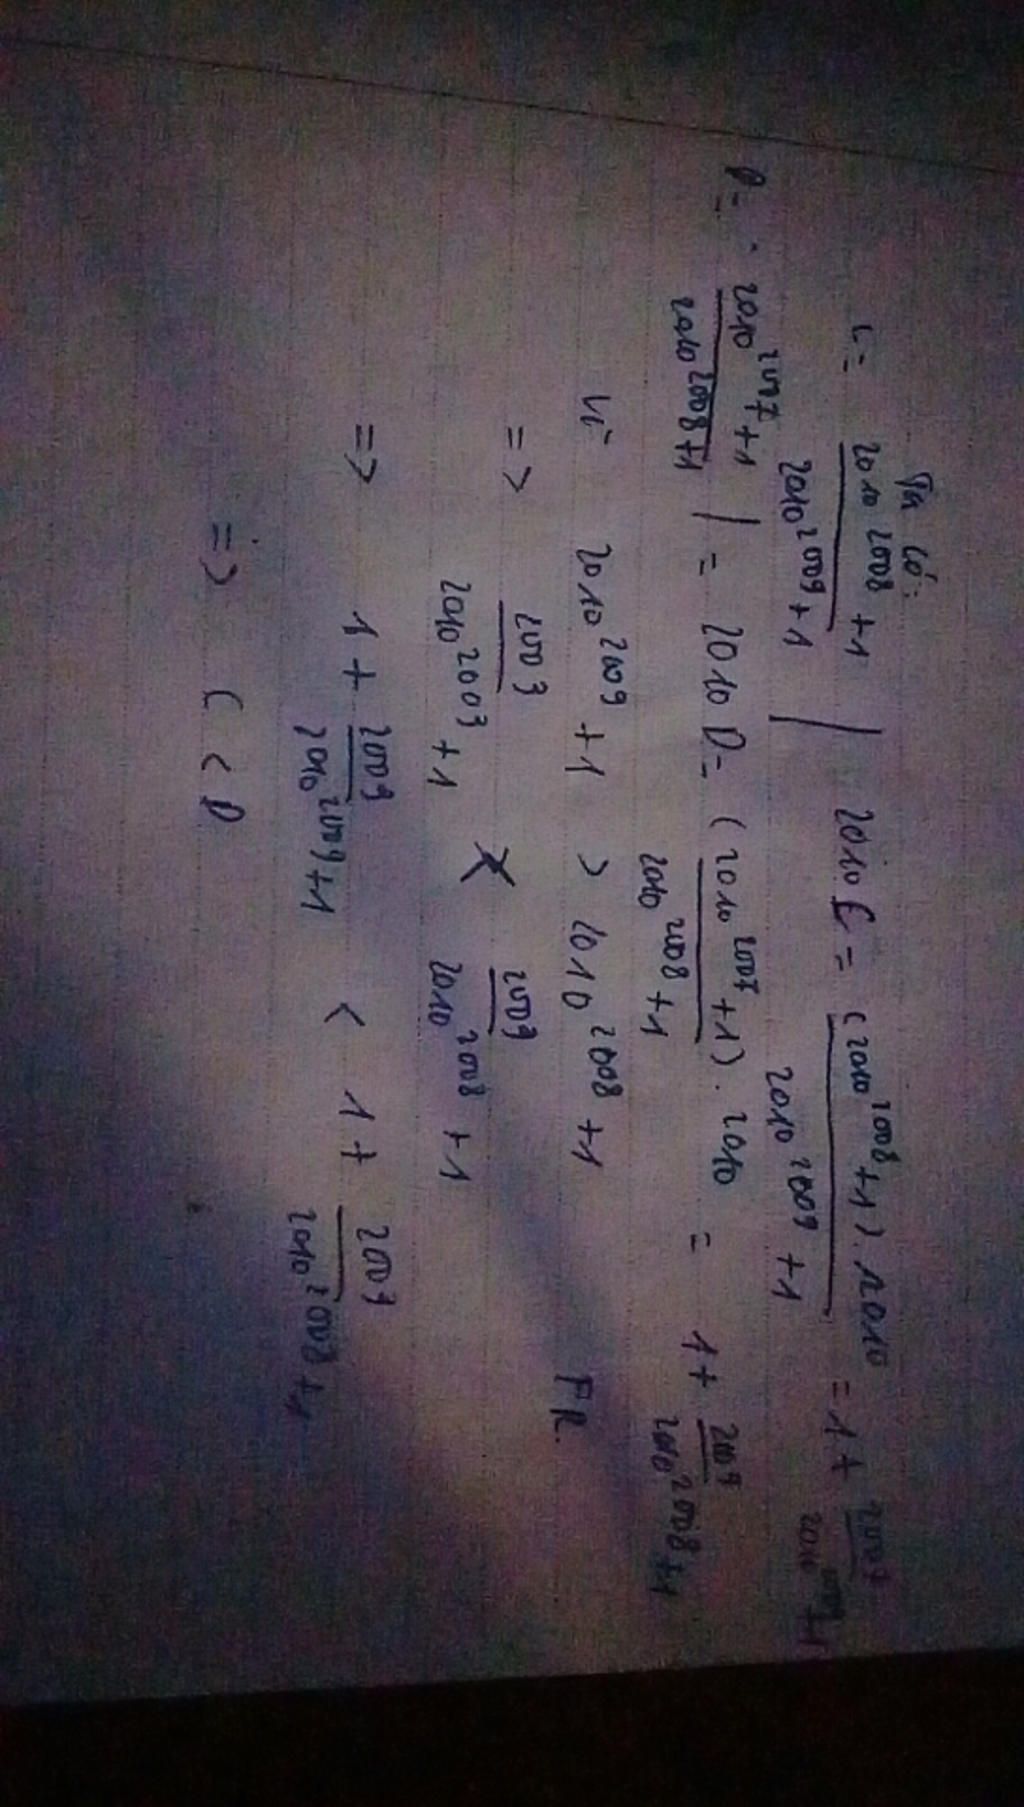 Ta có:
C = 2010^2008 + 1 / 2010^2009 + 1 | 2010 C = (2010^2008 + 1) . 2010 / 2010^2009 + 1 = 1 + 2009 / 2010^2009 + 1
D = 2010^2007 + 1 / 2010^2008 + 1 | = 2010 D = (2010^2007 + 1) . 2010 / 2010^2008 + 1 = 1 + 2009 / 2010^2008 + 1
Vì 2010^2009 + 1 > 2010^2008 + 1
=> 2009 / 2010^2009 + 1 < 2009 / 2010^2008 + 1
=> 1 + 2009 / 2010^2009 + 1 < 1 + 2009 / 2010^2008 + 1
=> C < D